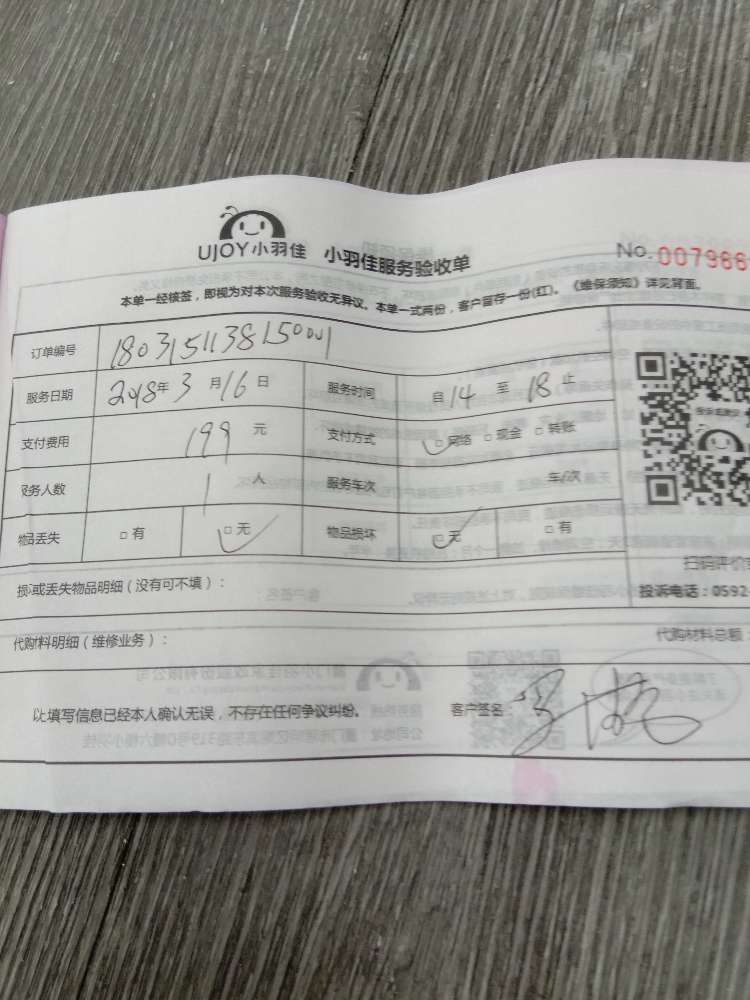 UJOY小羽佳 小羽佳服务验收单 No.007986
本单一经核签，即视为对本次服务验收无异议。本单一式两份，客户留存一份(红)。《维保须知》详见背面。
订单编号
服务日期 2018年3月16日 服务时间 自14至18止
支付费用 199元 支付方式 □网络 □现金 □转账
服务人数 1人 服务车次 车/次
物品丢失 □有 □无 物品损坏 □无 □有
损或丢失物品明细（没有可不填）：
扫码评价
投诉电话：0592
代购材料明细（维修业务）： 代购材料总额：
以上填写信息已经本人确认无误，不存在任何争议纠纷。 客户签名：